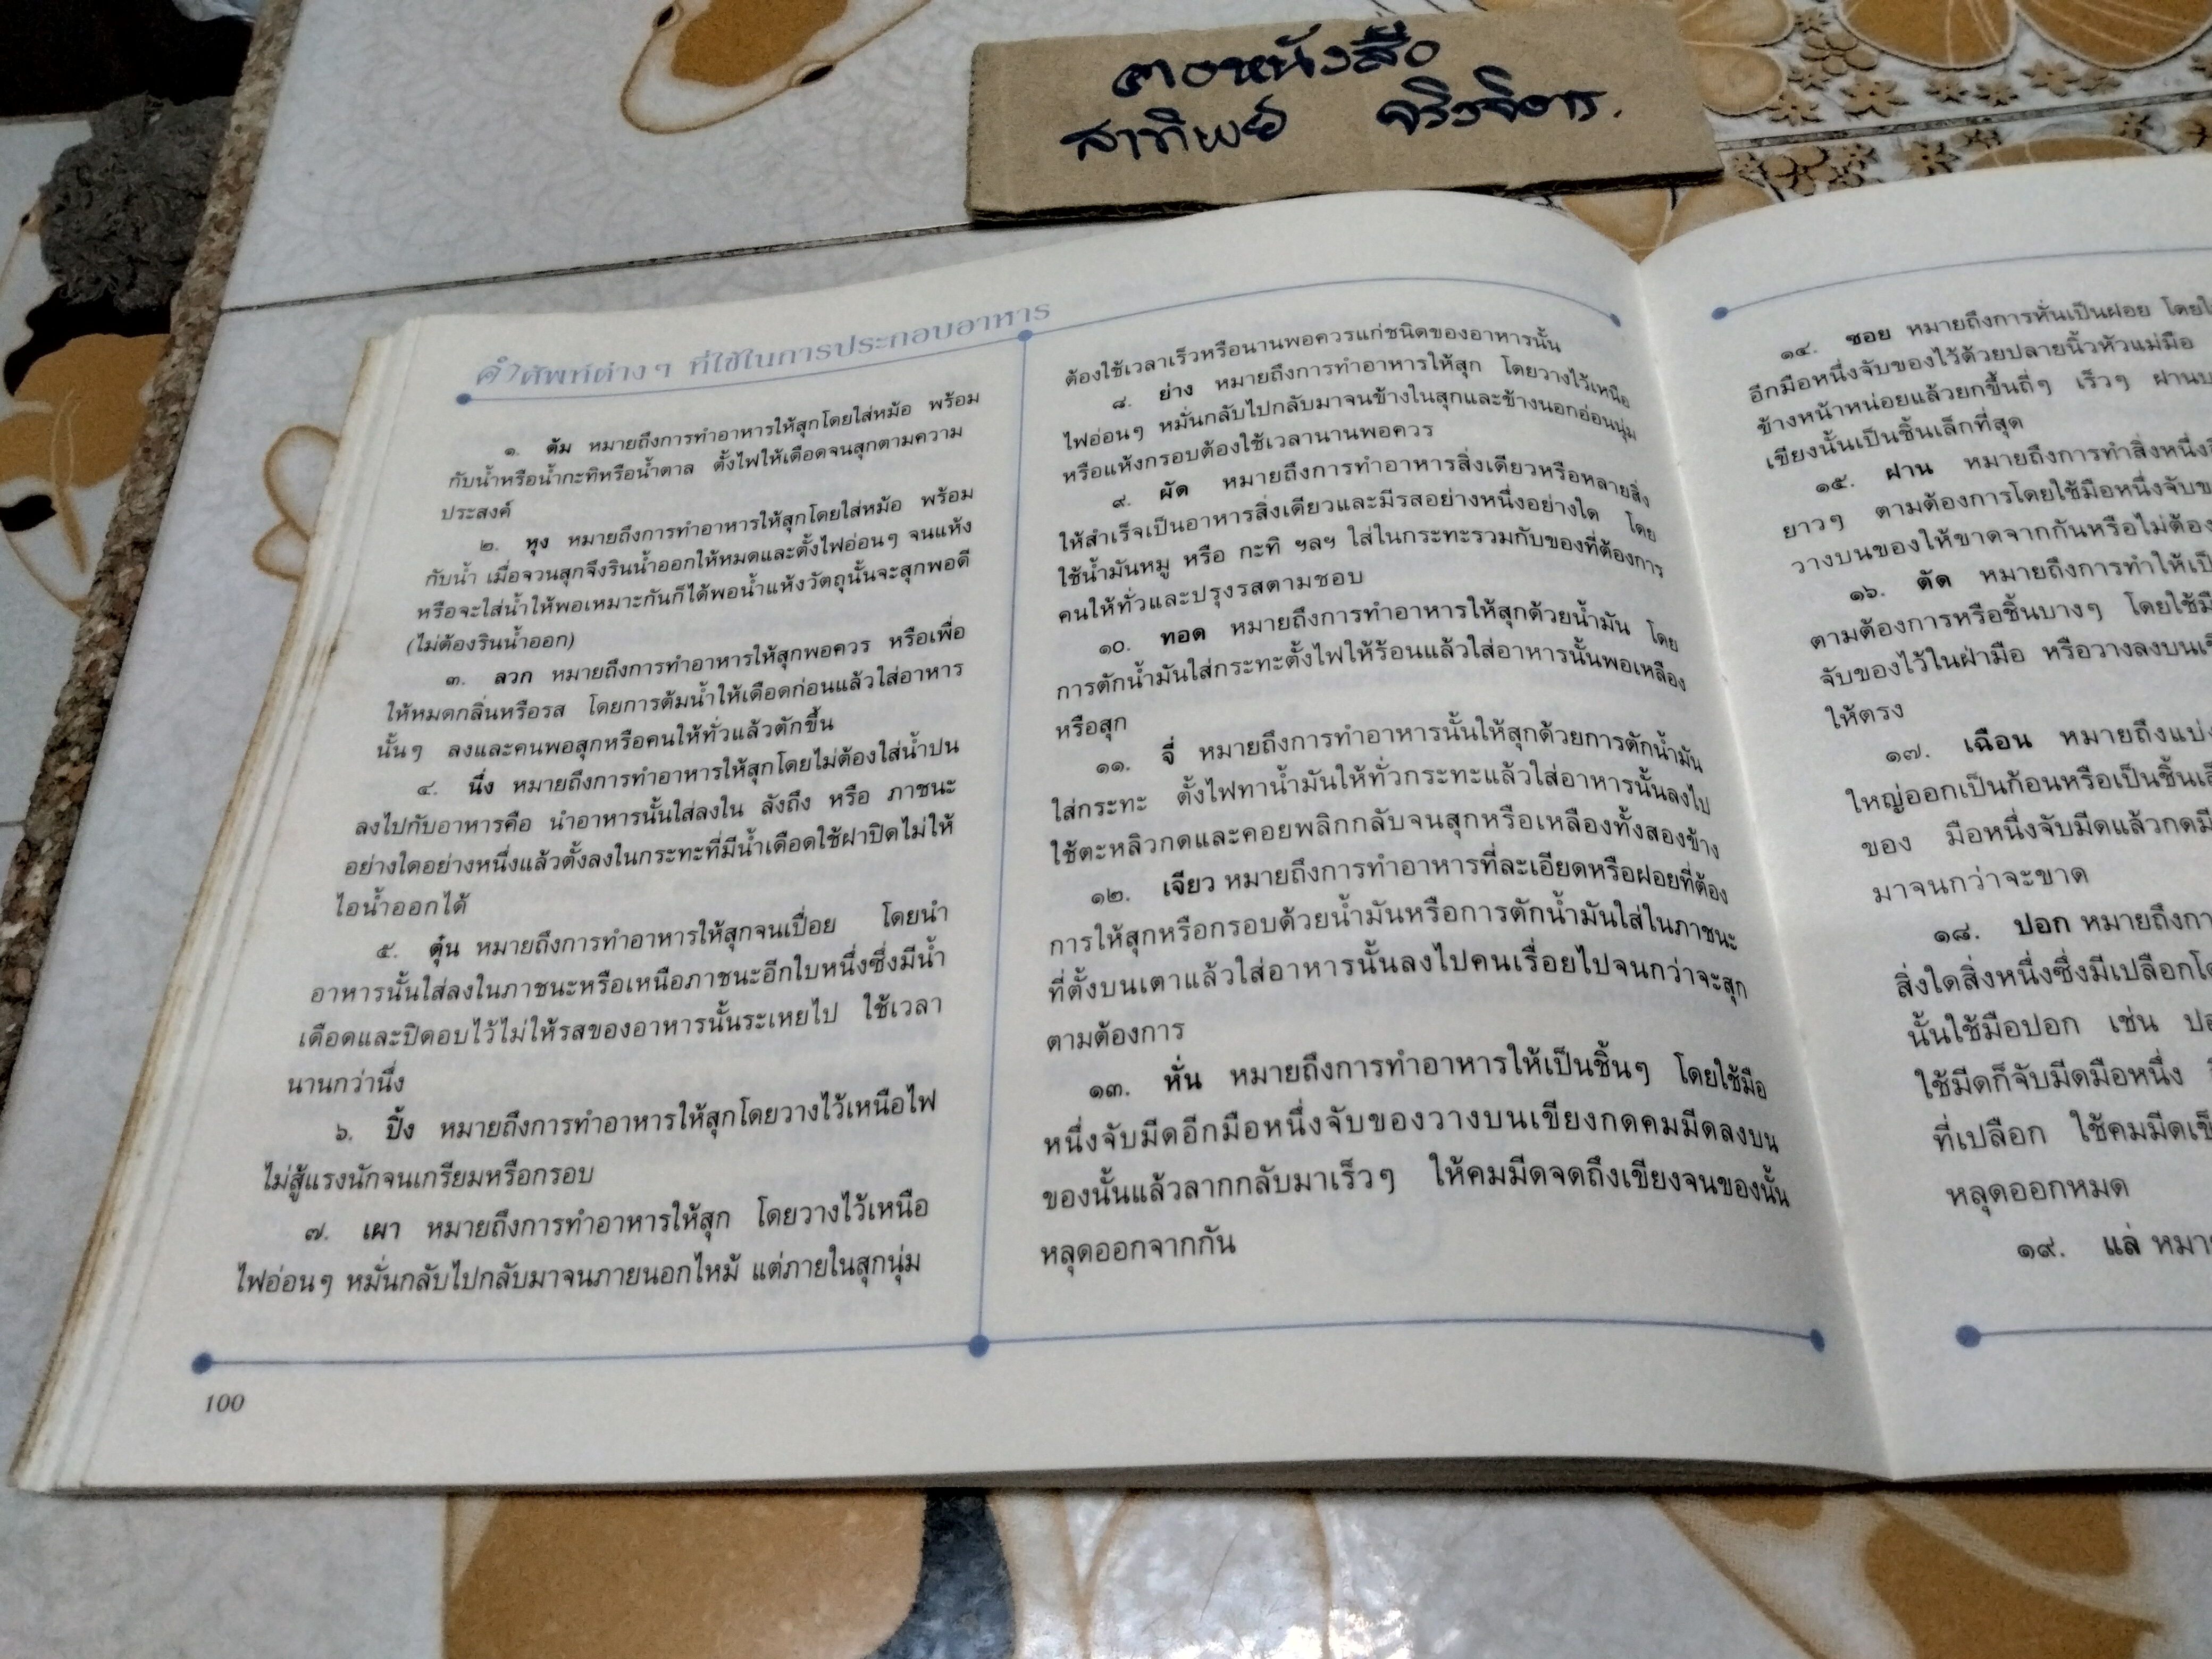 สาทิพย์
คำศัพท์ต่างๆ ที่ใช้ในการประกอบอาหาร
๑. ต้ม หมายถึงการทำอาหารให้สุกโดยใส่หม้อ พร้อม
กับน้ำหรือน้ำกะทิหรือน้ำตาล ตั้งไฟให้เดือดจนสุกตามความ
ประสงค์
๒. หุง หมายถึงการทำอาหารให้สุกโดยใส่หม้อ พร้อม
กับน้ำ เมื่อจวนสุกจึงรินน้ำออกให้หมดและตั้งไฟอ่อนๆ จนแห้ง
หรือจะใส่น้ำให้พอเหมาะกันก็ได้พอน้ำแห้งวัตถุนั้นจะสุกพอดี
(ไม่ต้องรินน้ำออก)
๓. ลวก หมายถึงการทำอาหารให้สุกพอควร หรือเพื่อ
ให้หมดกลิ่นหรือรส โดยการต้มน้ำให้เดือดก่อนแล้วใส่อาหาร
นั้นๆ ลงและคนพอสุกหรือคนให้ทั่วแล้วตักขึ้น
๔. นึ่ง หมายถึงการทำอาหารให้สุกโดยไม่ต้องใส่น้ำปน
ลงไปกับอาหารคือ นำอาหารนั้นใส่ลงใน ลังถึง หรือ ภาชนะ
อย่างใดอย่างหนึ่งแล้วตั้งลงในกระทะที่มีน้ำเดือดใช้ฝาปิดไม่ให้
ไอน้ำออกได้
๕. ตุ๋น หมายถึงการทำอาหารให้สุกจนเปื่อย โดยนำ
อาหารนั้นใส่ลงในภาชนะหรือเหนือภาชนะอีกใบหนึ่งซึ่งมีน้ำ
เดือดและปิดอบไว้ไม่ให้รสของอาหารนั้นระเหยไป ใช้เวลา
นานกว่านึ่ง
๖. ปิ้ง หมายถึงการทำอาหารให้สุกโดยวางไว้เหนือไฟ
ไม่สู้แรงนักจนเกรียมหรือกรอบ
๗. เผา หมายถึงการทำอาหารให้สุก โดยวางไว้เหนือ
ไฟอ่อนๆ หมั่นกลับไปกลับมาจนภายนอกไหม้ แต่ภายในสุกนุ่ม
100
ต้องใช้เวลาเร็วหรือนานพอควรแก่ชนิดของอาหารนั้น
๘. ย่าง หมายถึงการทำอาหารให้สุก โดยวางไว้เหนือ
ไฟอ่อนๆ หมั่นกลับไปกลับมาจนข้างในสุกและข้างนอกอ่อนนุ่ม
หรือแห้งกรอบต้องใช้เวลานานพอควร
๙. ผัด หมายถึงการทำอาหารสิ่งเดียวหรือหลายสิ่ง
ให้สำเร็จเป็นอาหารสิ่งเดียวและมีรสอย่างหนึ่งอย่างใด โดย
ใช้น้ำมันหมู หรือ กะทิ ฯลฯ ใส่ในกระทะรวมกับของที่ต้องการ
คนให้ทั่วและปรุงรสตามชอบ
๑๐. ทอด หมายถึงการทำอาหารให้สุกด้วยน้ำมัน โดย
การตักน้ำมันใส่กระทะตั้งไฟให้ร้อนแล้วใส่อาหารนั้นพอเหลือง
หรือสุก
๑๑. จี่ หมายถึงการทำอาหารนั้นให้สุกด้วยการตักน้ำมัน
ใส่กระทะ ตั้งไฟทาน้ำมันให้ทั่วกระทะแล้วใส่อาหารนั้นลงไป
ใช้ตะหลิวกดและคอยพลิกกลับจนสุกหรือเหลืองทั้งสองข้าง
๑๒. เจียว หมายถึงการทำอาหารที่ละเอียดหรือฝอยที่ต้อง
การให้สุกหรือกรอบด้วยน้ำมันหรือการตักน้ำมันใส่ในภาชนะ
ที่ตั้งบนเตาแล้วใส่อาหารนั้นลงไปคนเรื่อยไปจนกว่าจะสุก
ตามต้องการ
๑๓. หั่น หมายถึงการทำอาหารให้เป็นชิ้นๆ โดยใช้มือ
หนึ่งจับมีดอีกมือหนึ่งจับของวางบนเขียงกดคมมีดลงบน
ของนั้นแล้วลากกลับมาเร็วๆ ให้คมมีดจดถึงเขียงจนของนั้น
หลุดออกจากกัน
๑๔. ซอย หมายถึงการหั่นเป็นฝอย
อีกมือหนึ่งจับของไว้ด้วยปลายนิ้วหัวแม่มือ
ข้างหน้าหน่อยแล้วยกขึ้นถี่ๆ เร็วๆ
เขียงนั้นเป็นชิ้นเล็กที่สุด
๑๕. ฝาน หมายถึงการทำสิ่งหนึ่ง
ยาวๆ ตามต้องการโดยใช้มือหนึ่งจับ
วางบนของให้ขาดจากกันหรือไม่ต้อง
๑๖. ตัด หมายถึงการทำให้
ตามต้องการหรือชิ้นบางๆ โดยใช้
จับของไว้ในฝ่ามือ หรือวางลงบน
ให้ตรง
๑๗. เฉือน หมายถึงแบ่ง
ใหญ่ออกเป็นก้อนหรือเป็นชิ้น
ของ มือหนึ่งจับมีดแล้วกด
มาจนกว่าจะขาด
๑๘. ปอก หมายถึง
สิ่งใดสิ่งหนึ่งซึ่งมีเปลือก
นั้นใช้มือปอก เช่น
ใช้มีดก็จับมีดมือหนึ่ง
ที่เปลือก ใช้คมมีด
หลุดออกหมด
๑๙. แล่